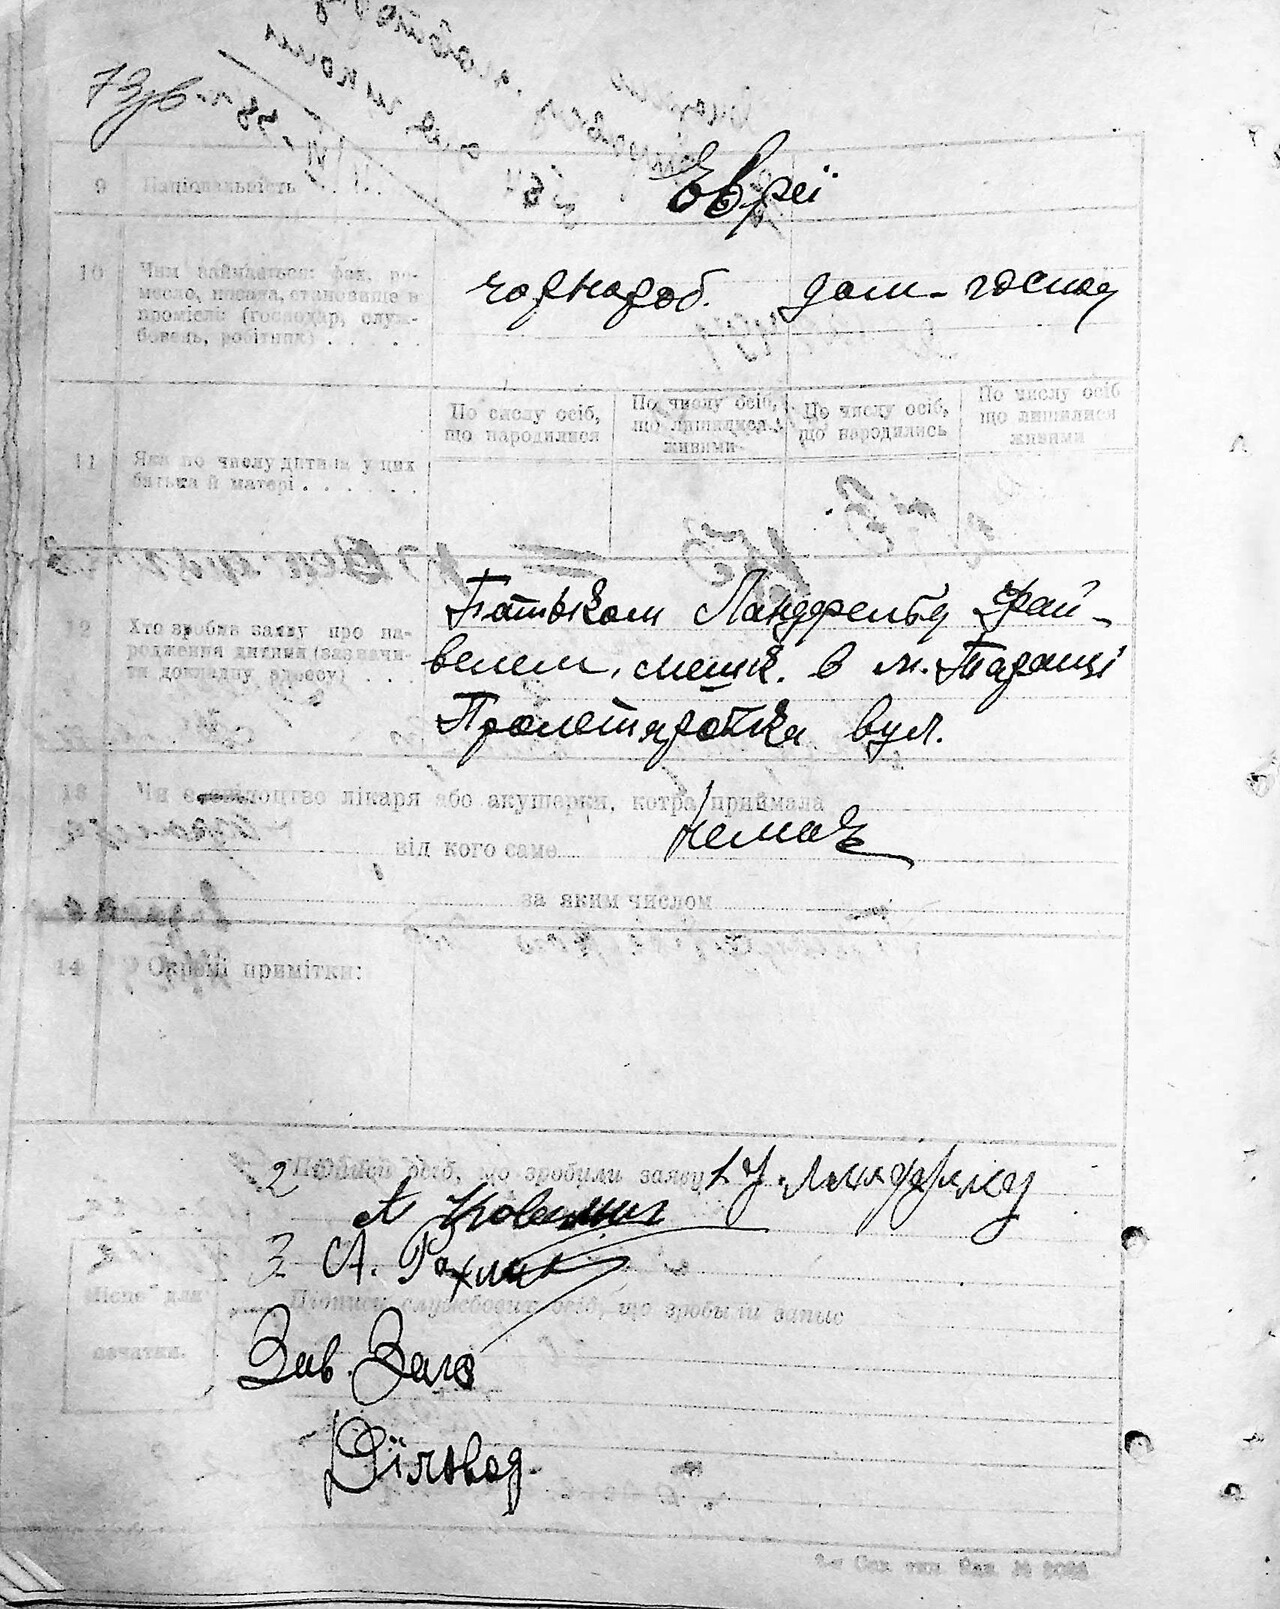 9 Національність
Євреї
10 Чим займається: фах, ре-
месло, посада, становище в
промислі (господар, служ-
бовець, робітник)
чорнороб. дом-господ
По числу осіб, що народилися
По числу осіб, що лишилися живими
По числу осіб, що народились
По числу осіб що лишилися живими
11 Яка по числу дитина у цих
батька й матері
12 Хто зробив заяву про на-
родження дитини (зазначи-
ти докладну адресу)
Батьком Ландфельд Фай-
велем, мешк. в м. Таращі
Пролетарська вул.
13 Чи є свідоцтво лікаря або акушерки, котра приймала
від кого саме
Немає
за яким числом
14 Окремі примітки:
Підписи осіб, що зробили заяву 1
2 А
3 А. Рахлин
Підписи службових осіб, що зробили запис
Місце для
печатки.
Зав. Загс
Діловод.